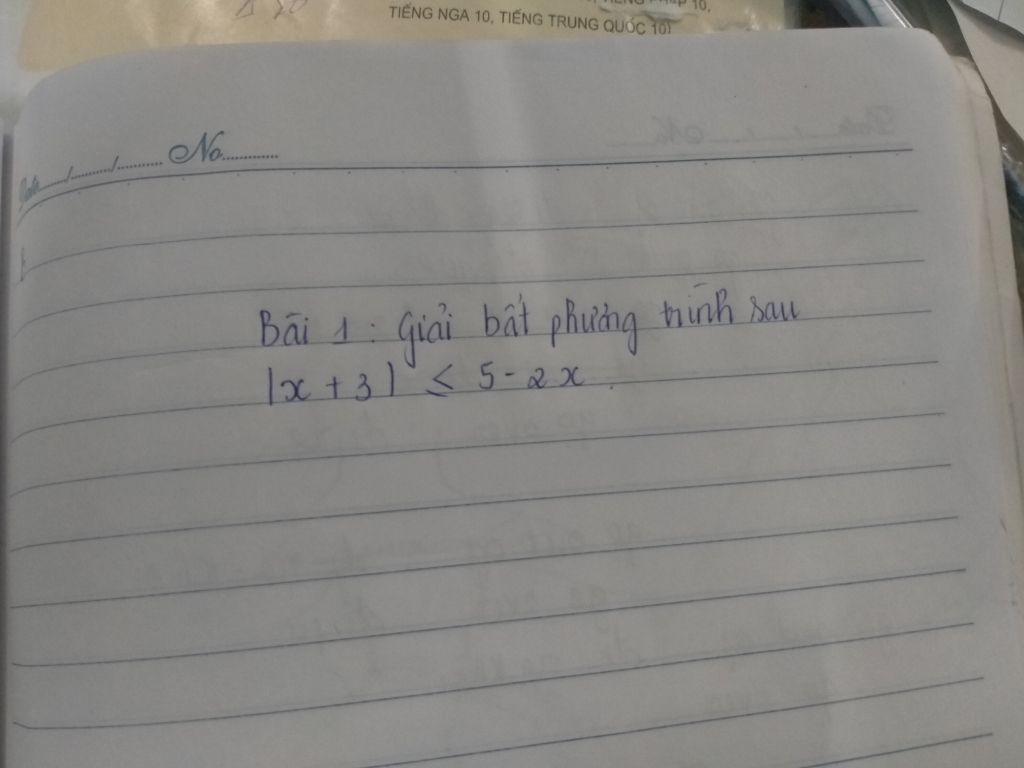 TIẾNG NGA 10, TIẾNG TRUNG QUỐC 10)
No
Bài 1: Giải bất phương trình sau
|x + 3| ≤ 5 - 2x.